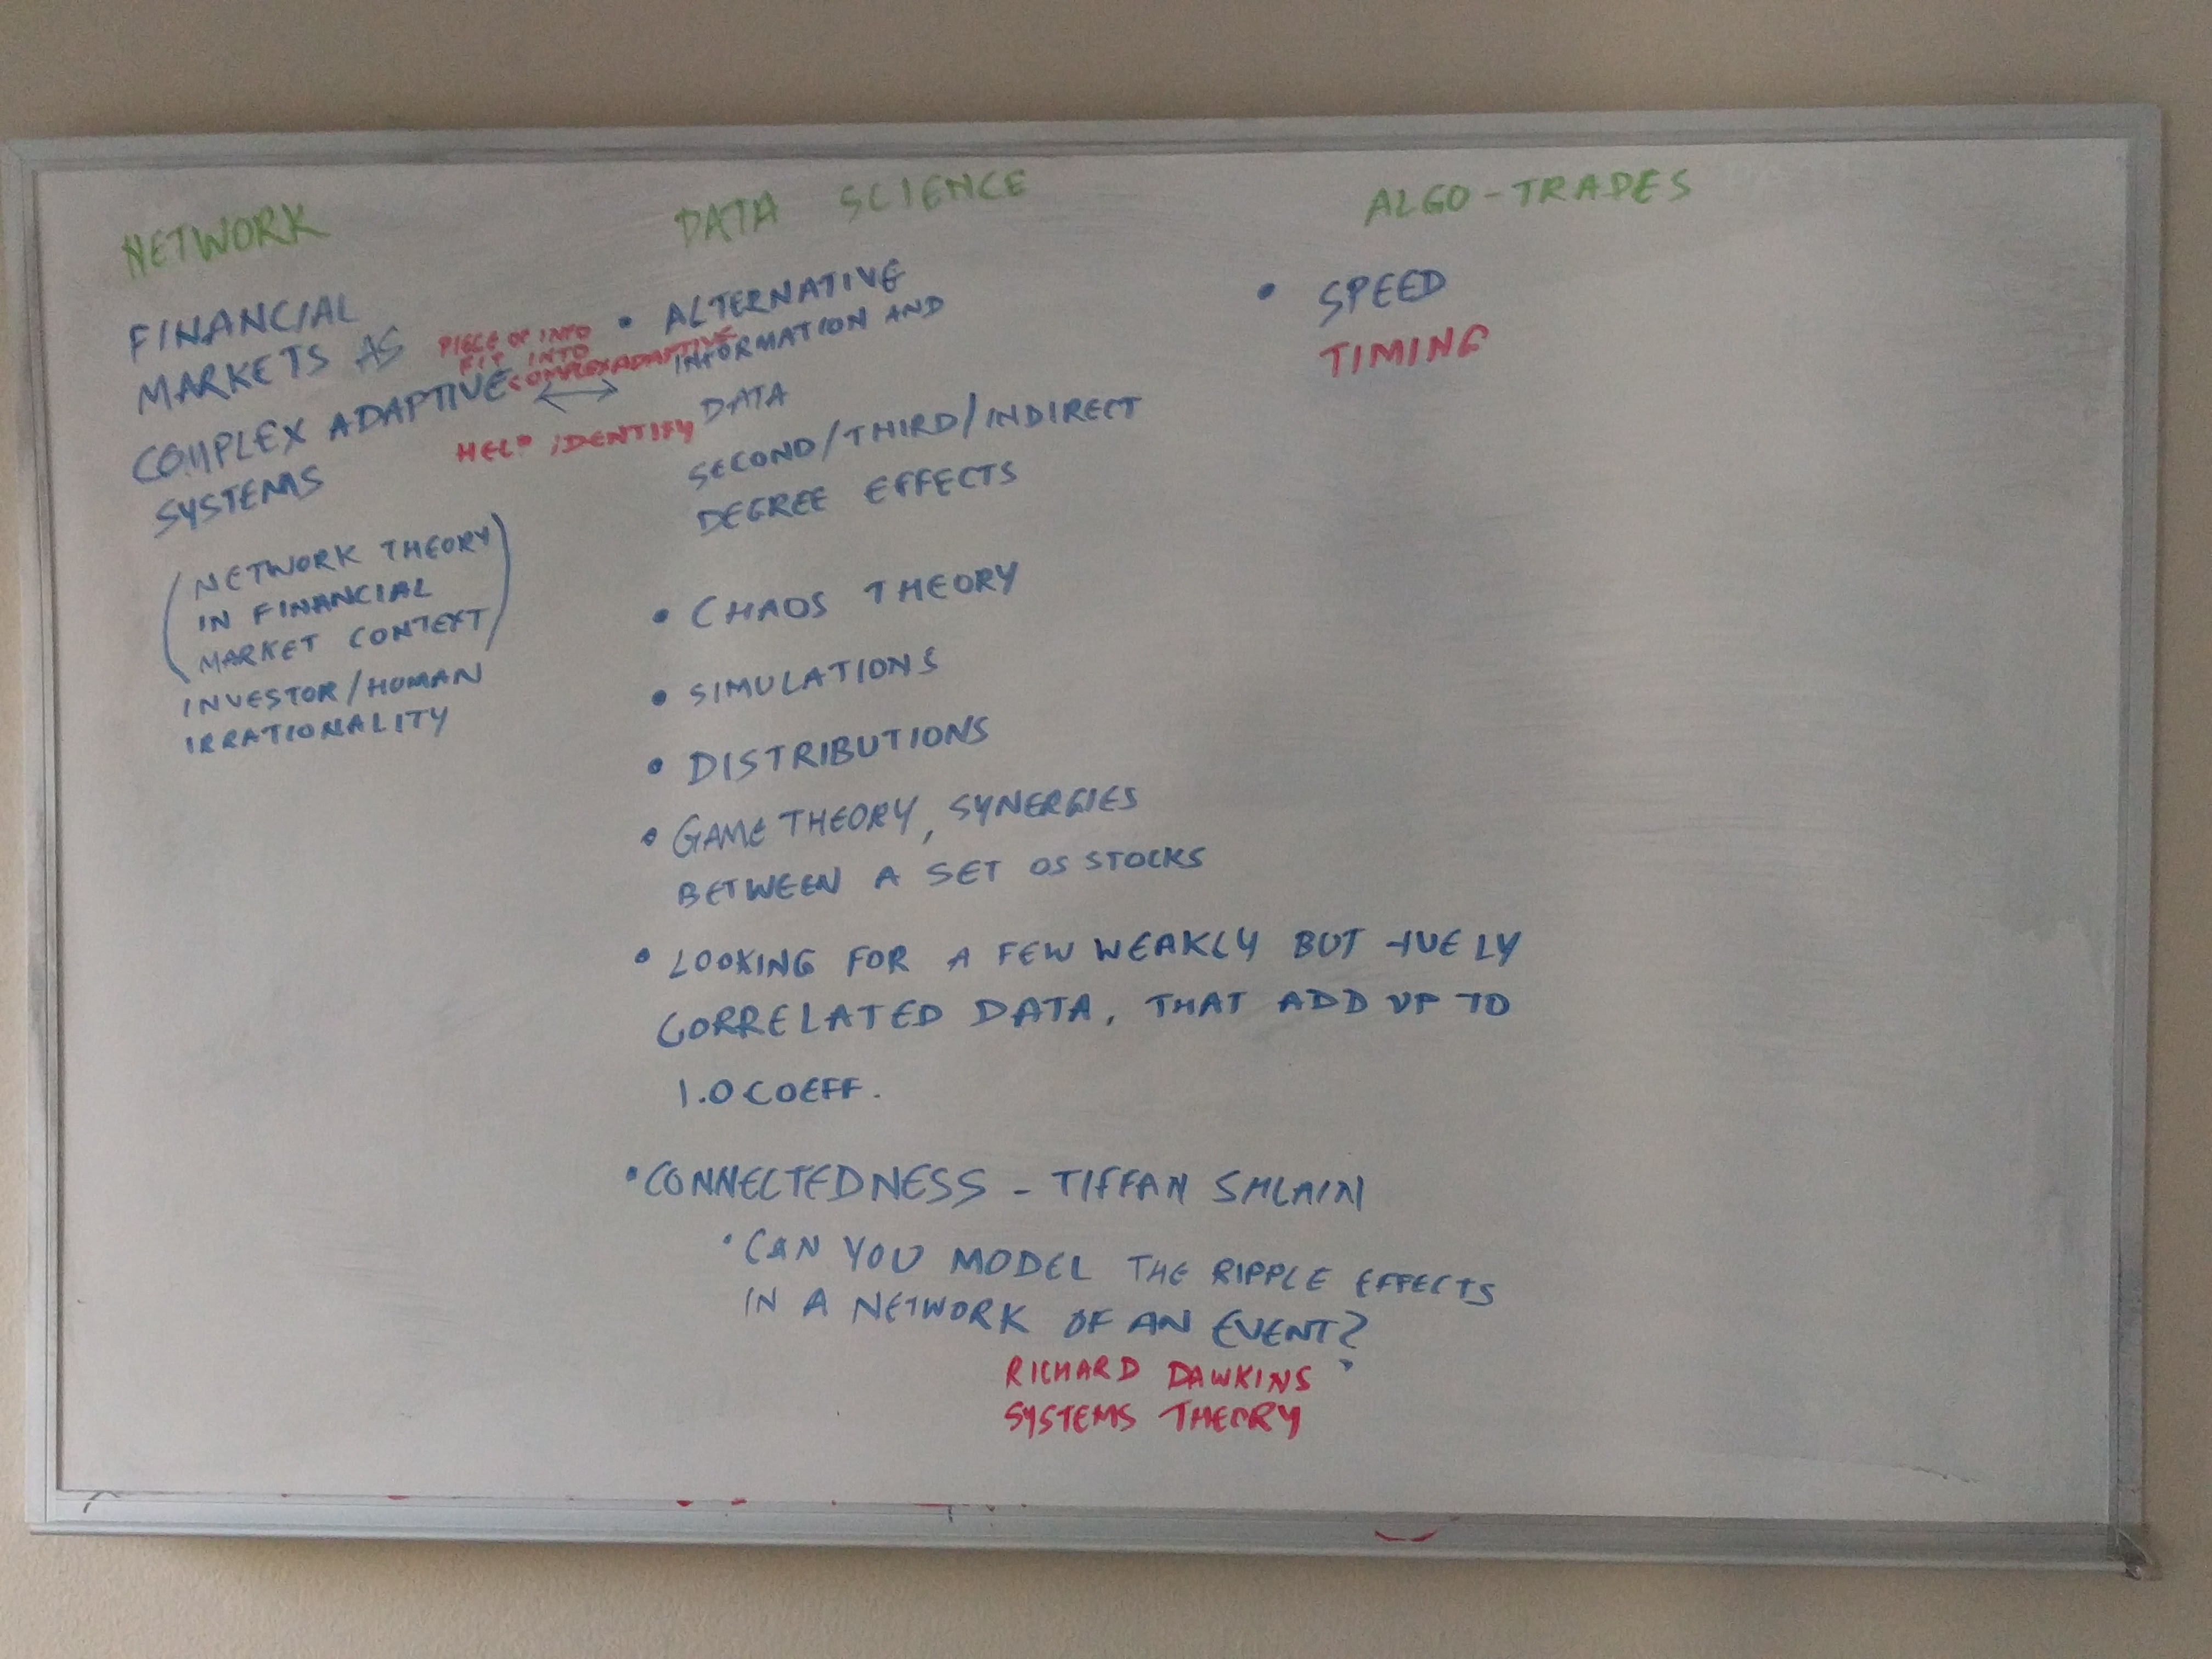 NETWORK
FINANCIAL
MARKETS AS
COMPLEX ADAPTIVE
SYSTEMS
(NETWORK THEORY
IN FINANCIAL
MARKET CONTEXT)
INVESTOR/HUMAN
IRRATIONALITY
PIECE OF INFO
FIT INTO
COMPLEX ADAPTIVE
HELP IDENTIFY
DATA SCIENCE
• ALTERNATIVE
INFORMATION AND
DATA
SECOND/THIRD/INDIRECT
DEGREE EFFECTS
• CHAOS THEORY
• SIMULATIONS
• DISTRIBUTIONS
• GAME THEORY, SYNERGIES
BETWEEN A SET OS STOCKS
• LOOKING FOR A FEW WEAKLY BUT +VELY
CORRELATED DATA, THAT ADD UP TO
1.0 COEFF.
• CONNECTEDNESS - TIFFAN SHLAIN
• CAN YOU MODEL THE RIPPLE EFFECTS
IN A NETWORK OF AN EVENT?
RICHARD DAWKINS
SYSTEMS THEORY
ALGO-TRADES
• SPEED
TIMING